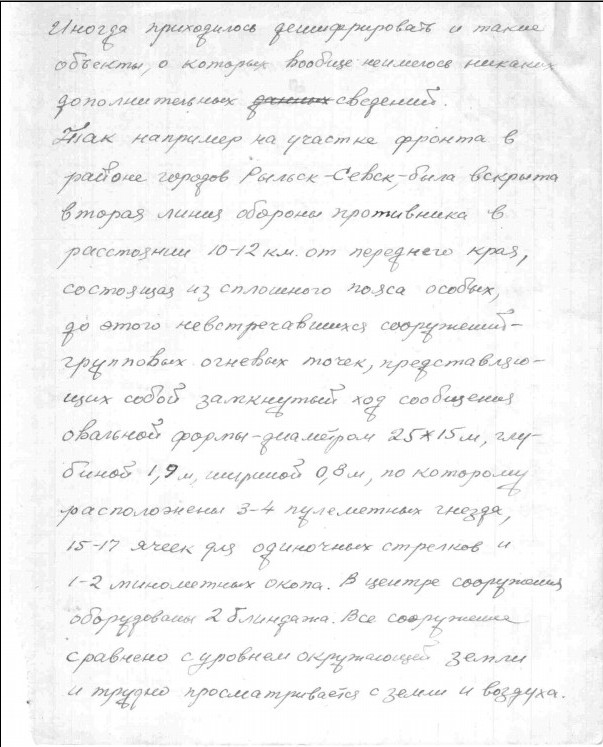 Иногда приходилось дешифрировать и такие
объекты, о которых вообще неимелось никаких
дополнительных данных сведений.
Так например на участке фронта в
районе городов Рыльск-Севск, была вскрыта
вторая линия обороны противника в
расстоянии 10-12 км. от переднего края,
состоящая из сплошного пояса особых,
до этого невстречавшихся сооружений-
групповых огневых точек, представляю-
щих собой замкнутый ход сообщения
овальной формы-диаметром 25×15 м, глу-
биной 1,9 м, шириной 0,8 м, по которому
расположены 3-4 пулеметных гнезда,
15-17 ячеек для одиночных стрелков и
1-2 минометных окопа. В центре сооружения
оборудованы 2 блиндажа. Все сооружение
сравнено с уровнем окружающей земли
и трудно просматривается с земли и воздуха.